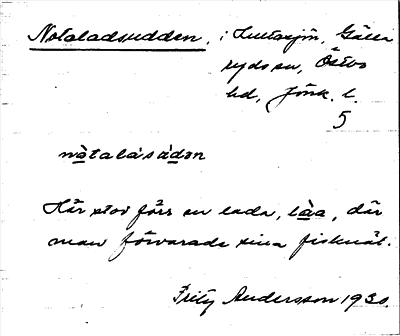 Notaladsudden, i Lustasjön, Gälla
ryds sn, Östbo
hd, Jönk. l.
5
nòtalásúdən
Här stod förr en lada, làa, där
man förvarade sina fisknät.
Fritz Andersson 1930.